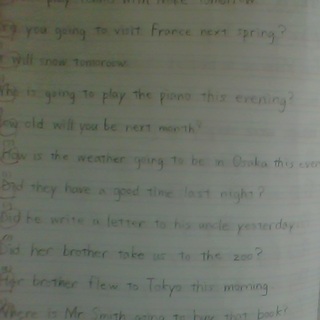 you going to visit France next spring?
will snow tomorrow.
is going to play the piano this evening?
old will you be next month?
How is the weather going to be in Osaka this
they have a good time last night?
Did he write a letter to his uncle yesterday
Did her brother take us to the zoo?
brother flew to Tokyo this morning.
Where is Mr. Smith going to buy that book?